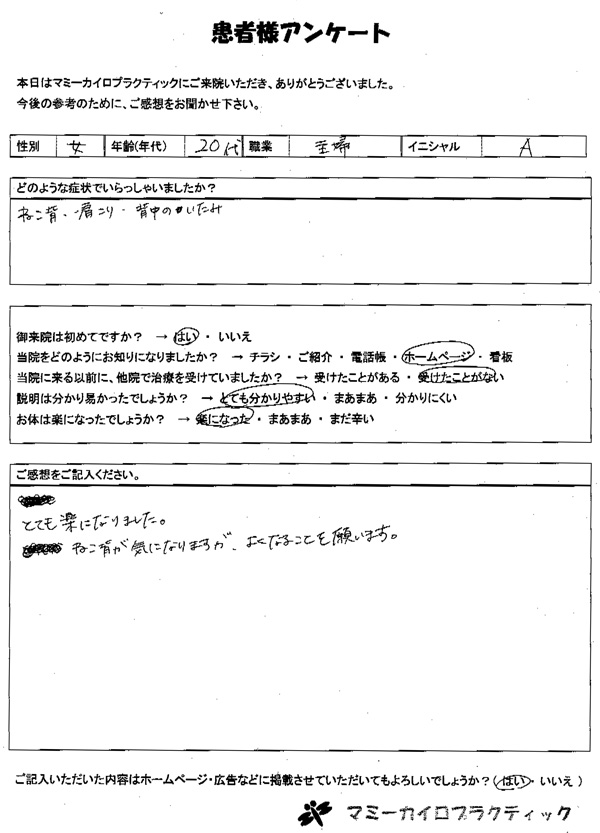 患者様アンケート
本日はマミーカイロプラクティックにご来院いただき、ありがとうございました。
今後の参考のために、ご感想をお聞かせ下さい。
性別 女 年齢(年代) 20代 職業 主婦 イニシャル A
どのような症状でいらっしゃいましたか?
ねこ背、肩こり・背中のいたみ
御来院は初めてですか? → はい ・ いいえ
当院をどのようにお知りになりましたか? → チラシ ・ ご紹介 ・ 電話帳 ・ ホームページ ・ 看板
当院に来る以前に、他院で治療を受けていましたか? → 受けたことがある ・ 受けたことがない
説明は分かり易かったでしょうか? → とても分かりやすい ・ まあまあ ・ 分かりにくい
お体は楽になったでしょうか? → 楽になった ・ まあまあ ・ まだ辛い
ご感想をご記入ください。
とても楽になりました。
ねこ背が気になりますが、よくなることを願います。
ご記入いただいた内容はホームページ・広告などに掲載させていただいてもよろしいでしょうか?(はい・いいえ)
マミーカイロプラクティック